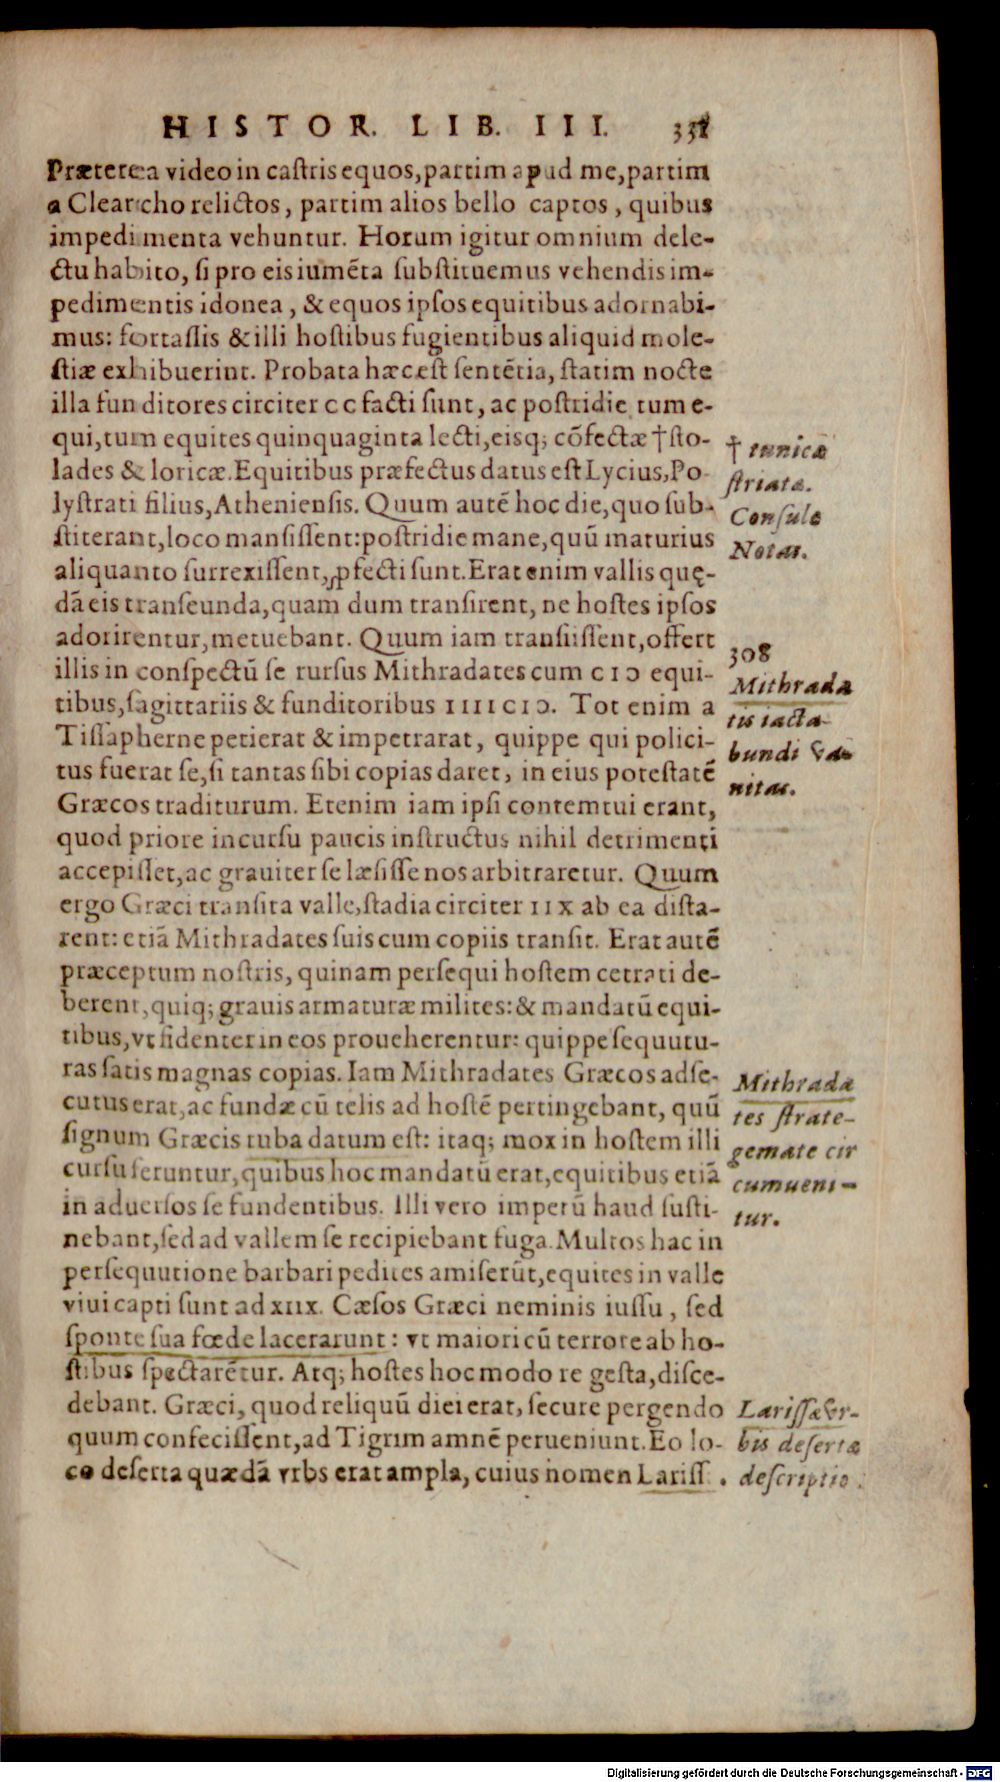 HISTOR. LIB. III. 331
Prætereà video in castris equos, partim apud me, partim
a Clearcho relictos, partim alios bello captos, quibus
impedimenta vehuntur. Horum igitur omnium dele-
ctu habito, si pro eis iumēta substituemus vehendis im-
pedimentis idonea, & equos ipsos equitibus adornabi-
mus: fortassis & illi hostibus fugientibus aliquid mole-
stiæ exhibuerint. Probata hæc est sentētia, statim nocte
illa funditores circiter cc facti sunt, ac postridie tum e-
qui, tum equites quinquaginta lecti, eisq; cōfectæ † sto-
lades & loricæ. Equitibus præfectus datus est Lycius, Po
lystrati filius, Atheniensis. Quum autē hoc die, quo sub-
stiterant, loco mansissent: postridie mane, quū maturius
aliquanto surrexissent, ꝓfecti sunt. Erat enim vallis quę-
dā eis transeunda, quam dum transirent, ne hostes ipsos
adorirentur, metuebant. Quum iam transiissent, offert
illis in conspectū se rursus Mithradates cum cIↄ equi-
tibus, sagittariis & funditoribus IIIIcIↄ. Tot enim a
Tissapherne petierat & impetrarat, quippe qui polici-
tus fuerat se, si tantas sibi copias daret, in eius potestatē
Græcos traditurum. Etenim iam ipsi contemtui erant,
quod priore incursu paucis instructus nihil detrimenti
accepisset, ac grauiter se læsisse nos arbitraretur. Quum
ergo Græci transita valle, stadia circiter IIX ab ea dista-
rent: etiā Mithradates suis cum copiis transit. Erat autē
præceptum nostris, quinam persequi hostem cetrati de-
berent, quiq; grauis armaturæ milites: & mandatū equi-
tibus, vt fidenter in eos proueherentur: quippe sequutu-
ras satis magnas copias. Iam Mithradates Græcos adse-
cutus erat, ac fundæ cū telis ad hostē pertingebant, quū
signum Græcis tuba datum est: itaq; mox in hostem illi
cursu feruntur, quibus hoc mandatū erat, equitibus etiā
in aduersos se fundentibus. Illi vero impetū haud susti-
nebant, sed ad vallem se recipiebant fuga. Multos hac in
persequutione barbari pedites amiserūt, equites in valle
viui capti sunt ad xiix. Cæsos Græci neminis iussu, sed
sponte sua fœde lacerarunt: vt maiori cū terrore ab ho-
stibus spectarētur. Atq; hostes hoc modo re gesta, disce-
debant. Græci, quod reliquū diei erat, secure pergendo
quum confecissent, ad Tigrim amnē perueniunt. Eo lo-
co deserta quædā vrbs erat ampla, cuius nomen Lariss .
† tunicæ
striatæ.
Consule
Notas.
308
Mithrada
tis iacta-
bundi va-
nitas.
Mithrada
tes strate-
gemate cir
cumueni-
tur.
Larissæ vr-
bis desertæ
descriptio.
Digitalisierung gefördert durch die Deutsche Forschungsgemeinschaft - DFG